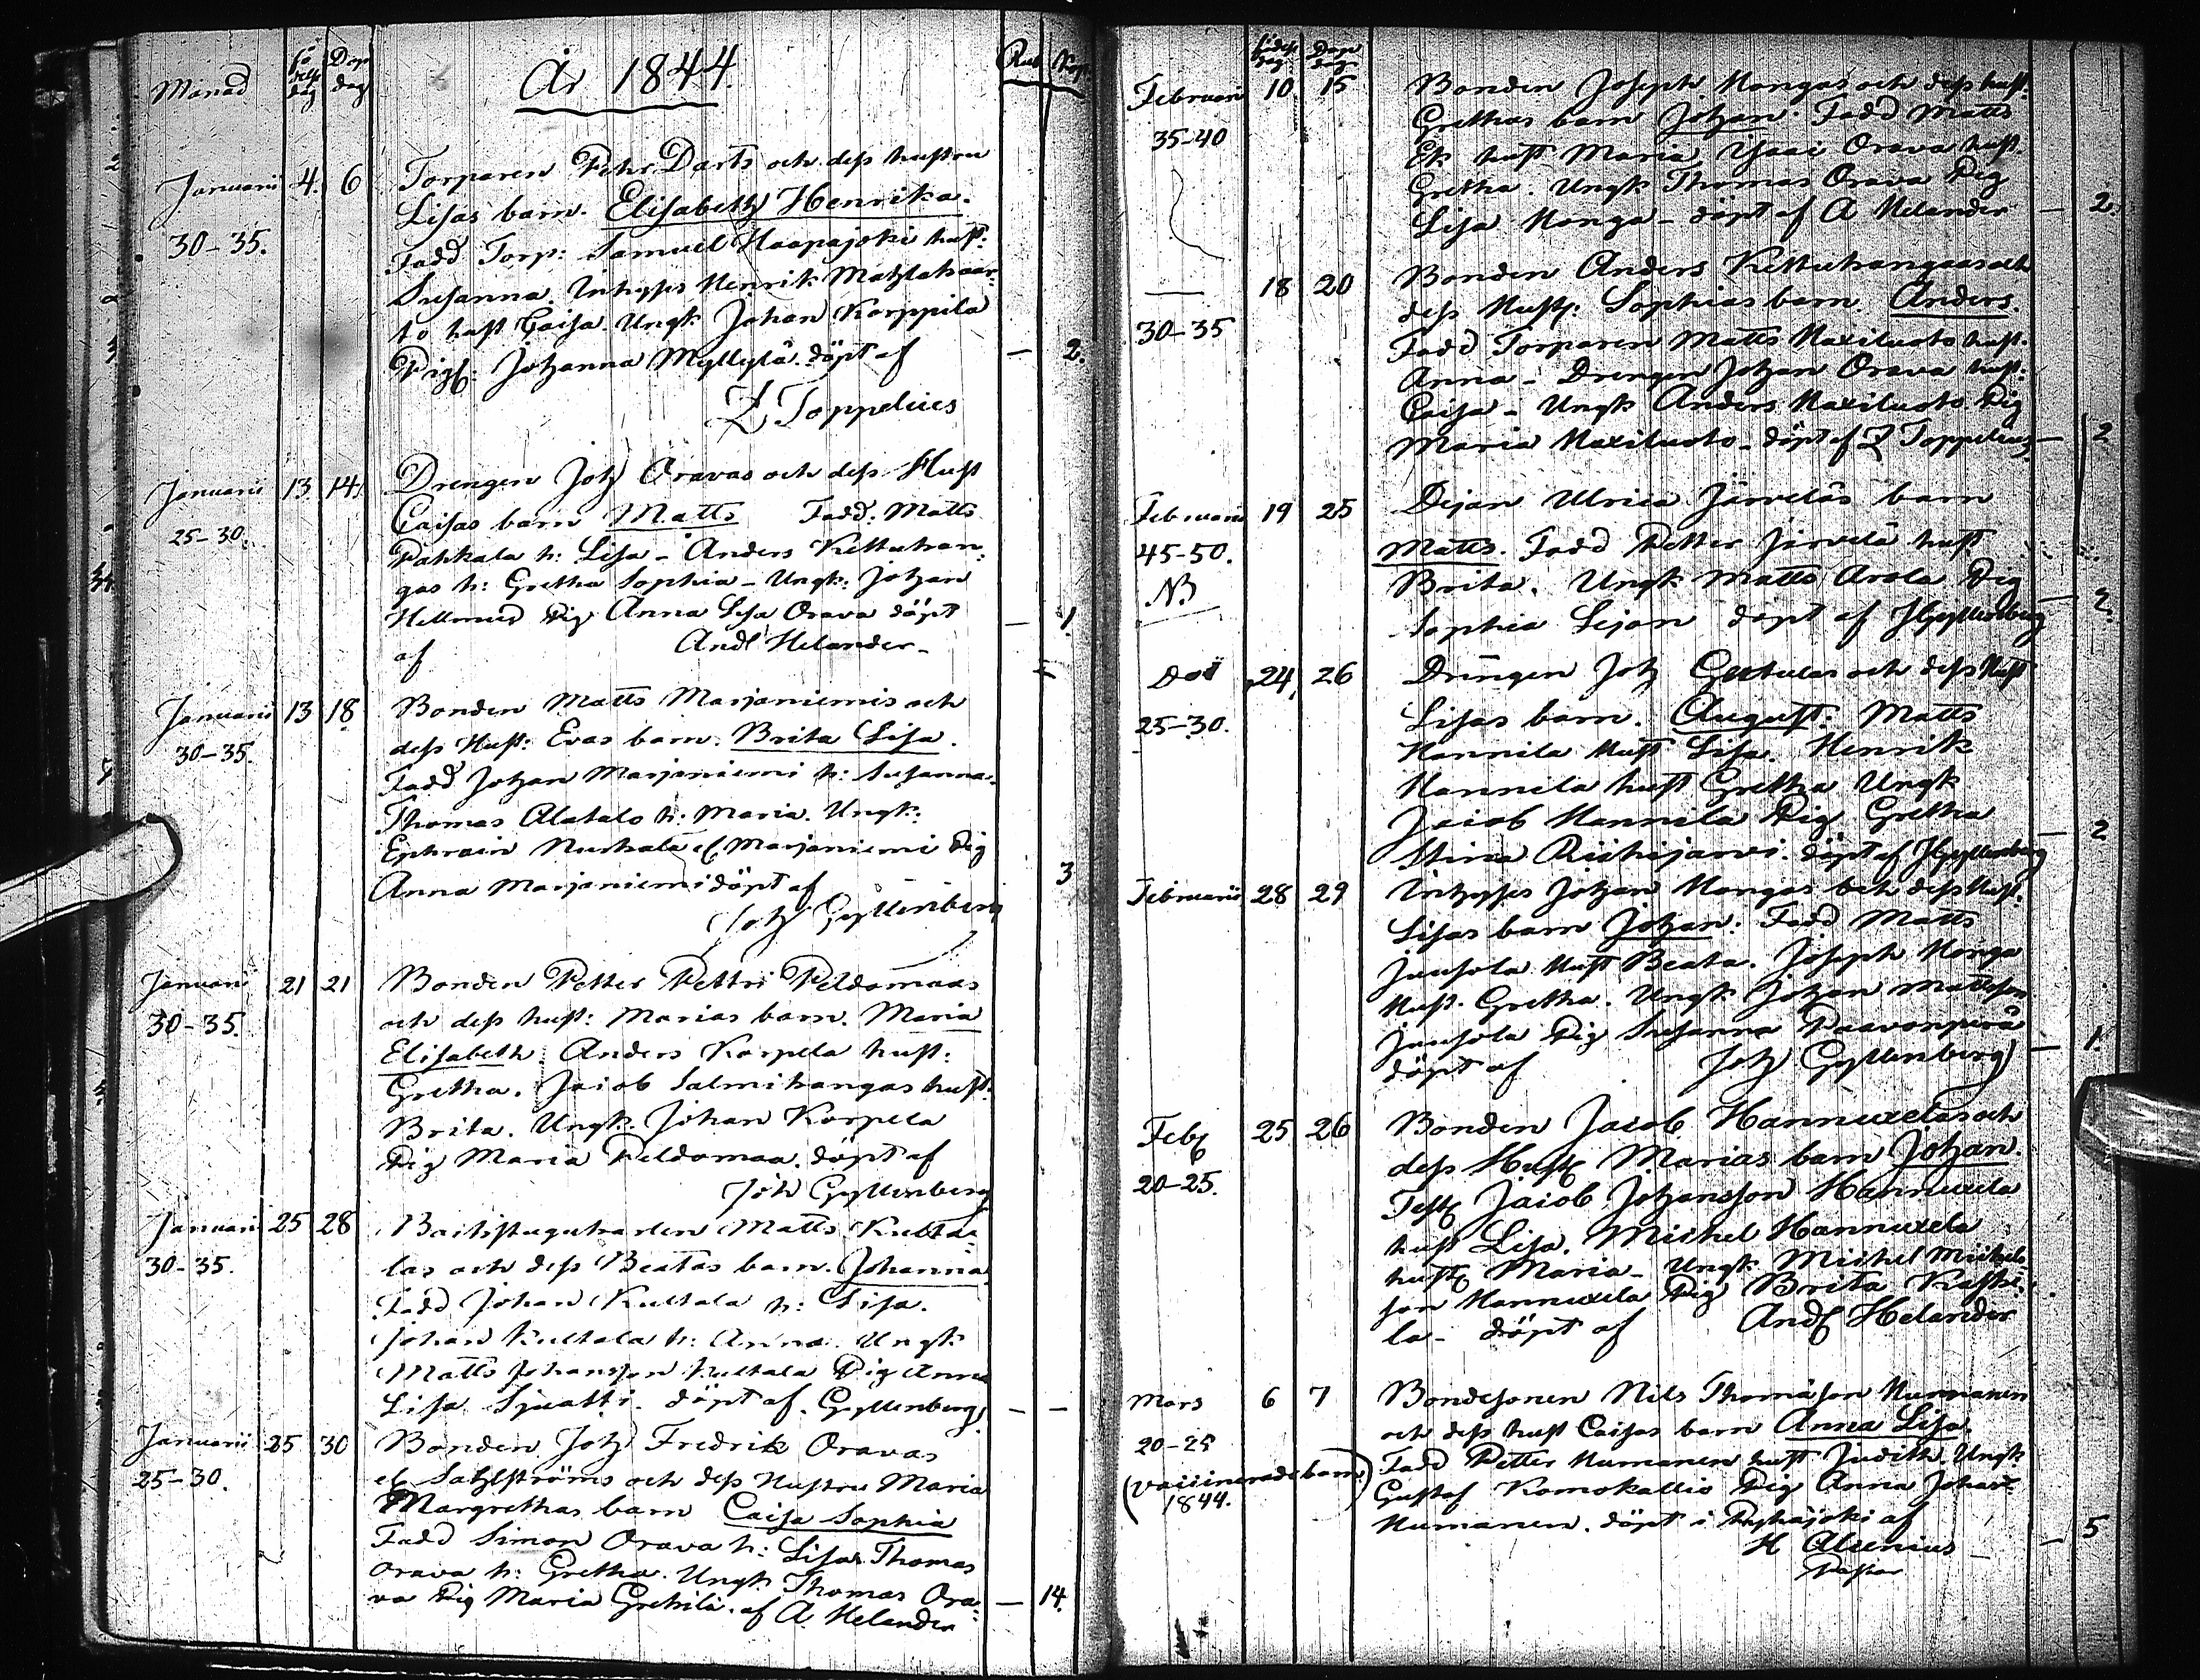 År 1844.
Månad födelse dag Dop dag Rub Kop
Januarii 4. 6 Torparen Petr Darts och dess hustru
Lisas barn. Elisabeth Henrika.
30-35. Fadd Torp: Samuel Haapajoki hust:
Susanna. Inhyses Henrik
to hust Caisa. Ungk Johan Korppila
Pig: Johanna Myllylä. döpt af — 2.
Z Toppelius
Januarii 13 14 Drengen Joh Oravas och dess Hust
Caisas barn Matts Fadd: Matts
25-30. Pahkala h: Lisa - Anders Kettukan-
gas h: Gretha Sophia - Ungk: Johan
Hellmud Pig Anna Lisa Orava döpt — 1.
af And Helander -
Januarii 13 18 Bonden Matts Marjaniemis och
30-35. dess Hust: Evas barn. Brita Lisa.
Fadd Johan Marjaniemi h: Susanna.
Thomas Alatalo h: Maria. Ungk:
Ephraim el Marjaniemi Pig
Anna Marjaniemi döpt af 3
Joh Gyllenberg
Januari 21 21 Bonden Petter Pettri Peldomaas
30-35. och dess hust: Marias barn. Maria
Elisabeth. Anders Korpela hust:
Gretha. Jacob Salmikangas hust:
Brita. Ungk. Johan Korpela
Pig Maria Peldomaa. döpt af
Joh Gyllenberg
Januari 25 28 Matts Kulta-
30-35. las och dess Beatas barn. Johanna
Fadd Johan Kultala h: Lisa.
Johan Kultala h: Anna. Ungk
Matts Johansson Kultala Pig Anna
Lisa döpt af. Gyllenberg — —
Januarii 25 30 Bonden Joh Fredrik Oravas
25-30. el Sahlströms och dess Hustru Maria
Margrethas barn Caisa Sophia
Fadd Simon Orava h: Lisa Thomas
Orava h: Gretha. Ungk Thomas Ora-
va Pig Maria Grekilä. af A Helander — 14.
födelse dag Dop dag
Februari 10 15 Bonden Joseph Hongas och dess hust.
35-40 Grethas barn Johan. Fadd Matts
Ek hust Maria, Isaac Orava hust.
Gretha. Ungk Thomas Orava Pig
Lisa Honga - döpt af A Helander — 2.
— 18 20 Bonden Anders Kettukangaas och
30-35 dess Hust: Sophias barn. Anders.
Fadd Torparen Matts Naxiluoto hust.
Anna - Drengen Johan Orava hust.
Caisa - Ungk Anders Naxiluoto Pig
Maria Naxiluoto - döpt af Z Toppelius — 2
Februarii 19 25 Pejan Ulrica Järveläs barn
45-50. Matts. Fadd Petter Järvelä hust
NB Brita. Ungk Matts Arola Pig
Sophia Lejon döpt af JGyllenberg — 2.
Do 24 26 Drengen Joh och dess Hust
25-30. Lisas barn. August. Matts
Hannila Hust Lisa. Henrik
Hannila hust Gretha Ungk
Jacob Hannila Pig Gretha
Stina Riihijarvi. döpt af JGyllenberg — 2
Februarii 28 29 Inhyses Johan Hongas och dess Hust.
Lisas barn Johan. Fadd Matts
Junsola Hust Beata. Joseph Honga
Hust. Gretha. Ungk Johan Mattsson
Junsola Pig Susanna Paavonperä
döpt af Joh Gyllenberg — 1.
Feb 25 26 Bonden Jacob Hannuxelas och
20-25. dess Hust Marias barn Johan.
Test Jacob Johansson Hannuxela
hust Lisa. Michel Hannuxela
hust Maria - Ungk Michel Michels-
son Hannuxela Pig Brita
la - döpt af And Helander
Mars 6 7 Bondesonen Nils Thomason Numanen
20-25 och dess hust Caisas barn Anna Lisa.
(vaccinerade barn) Fadd Petter Numanen hust Judith. Ungk
1844. Gustaf Komokallio Pig Anna Johan
Numanen. döpt i Pyhäjoki af
H Alcenius — 5
Pastor